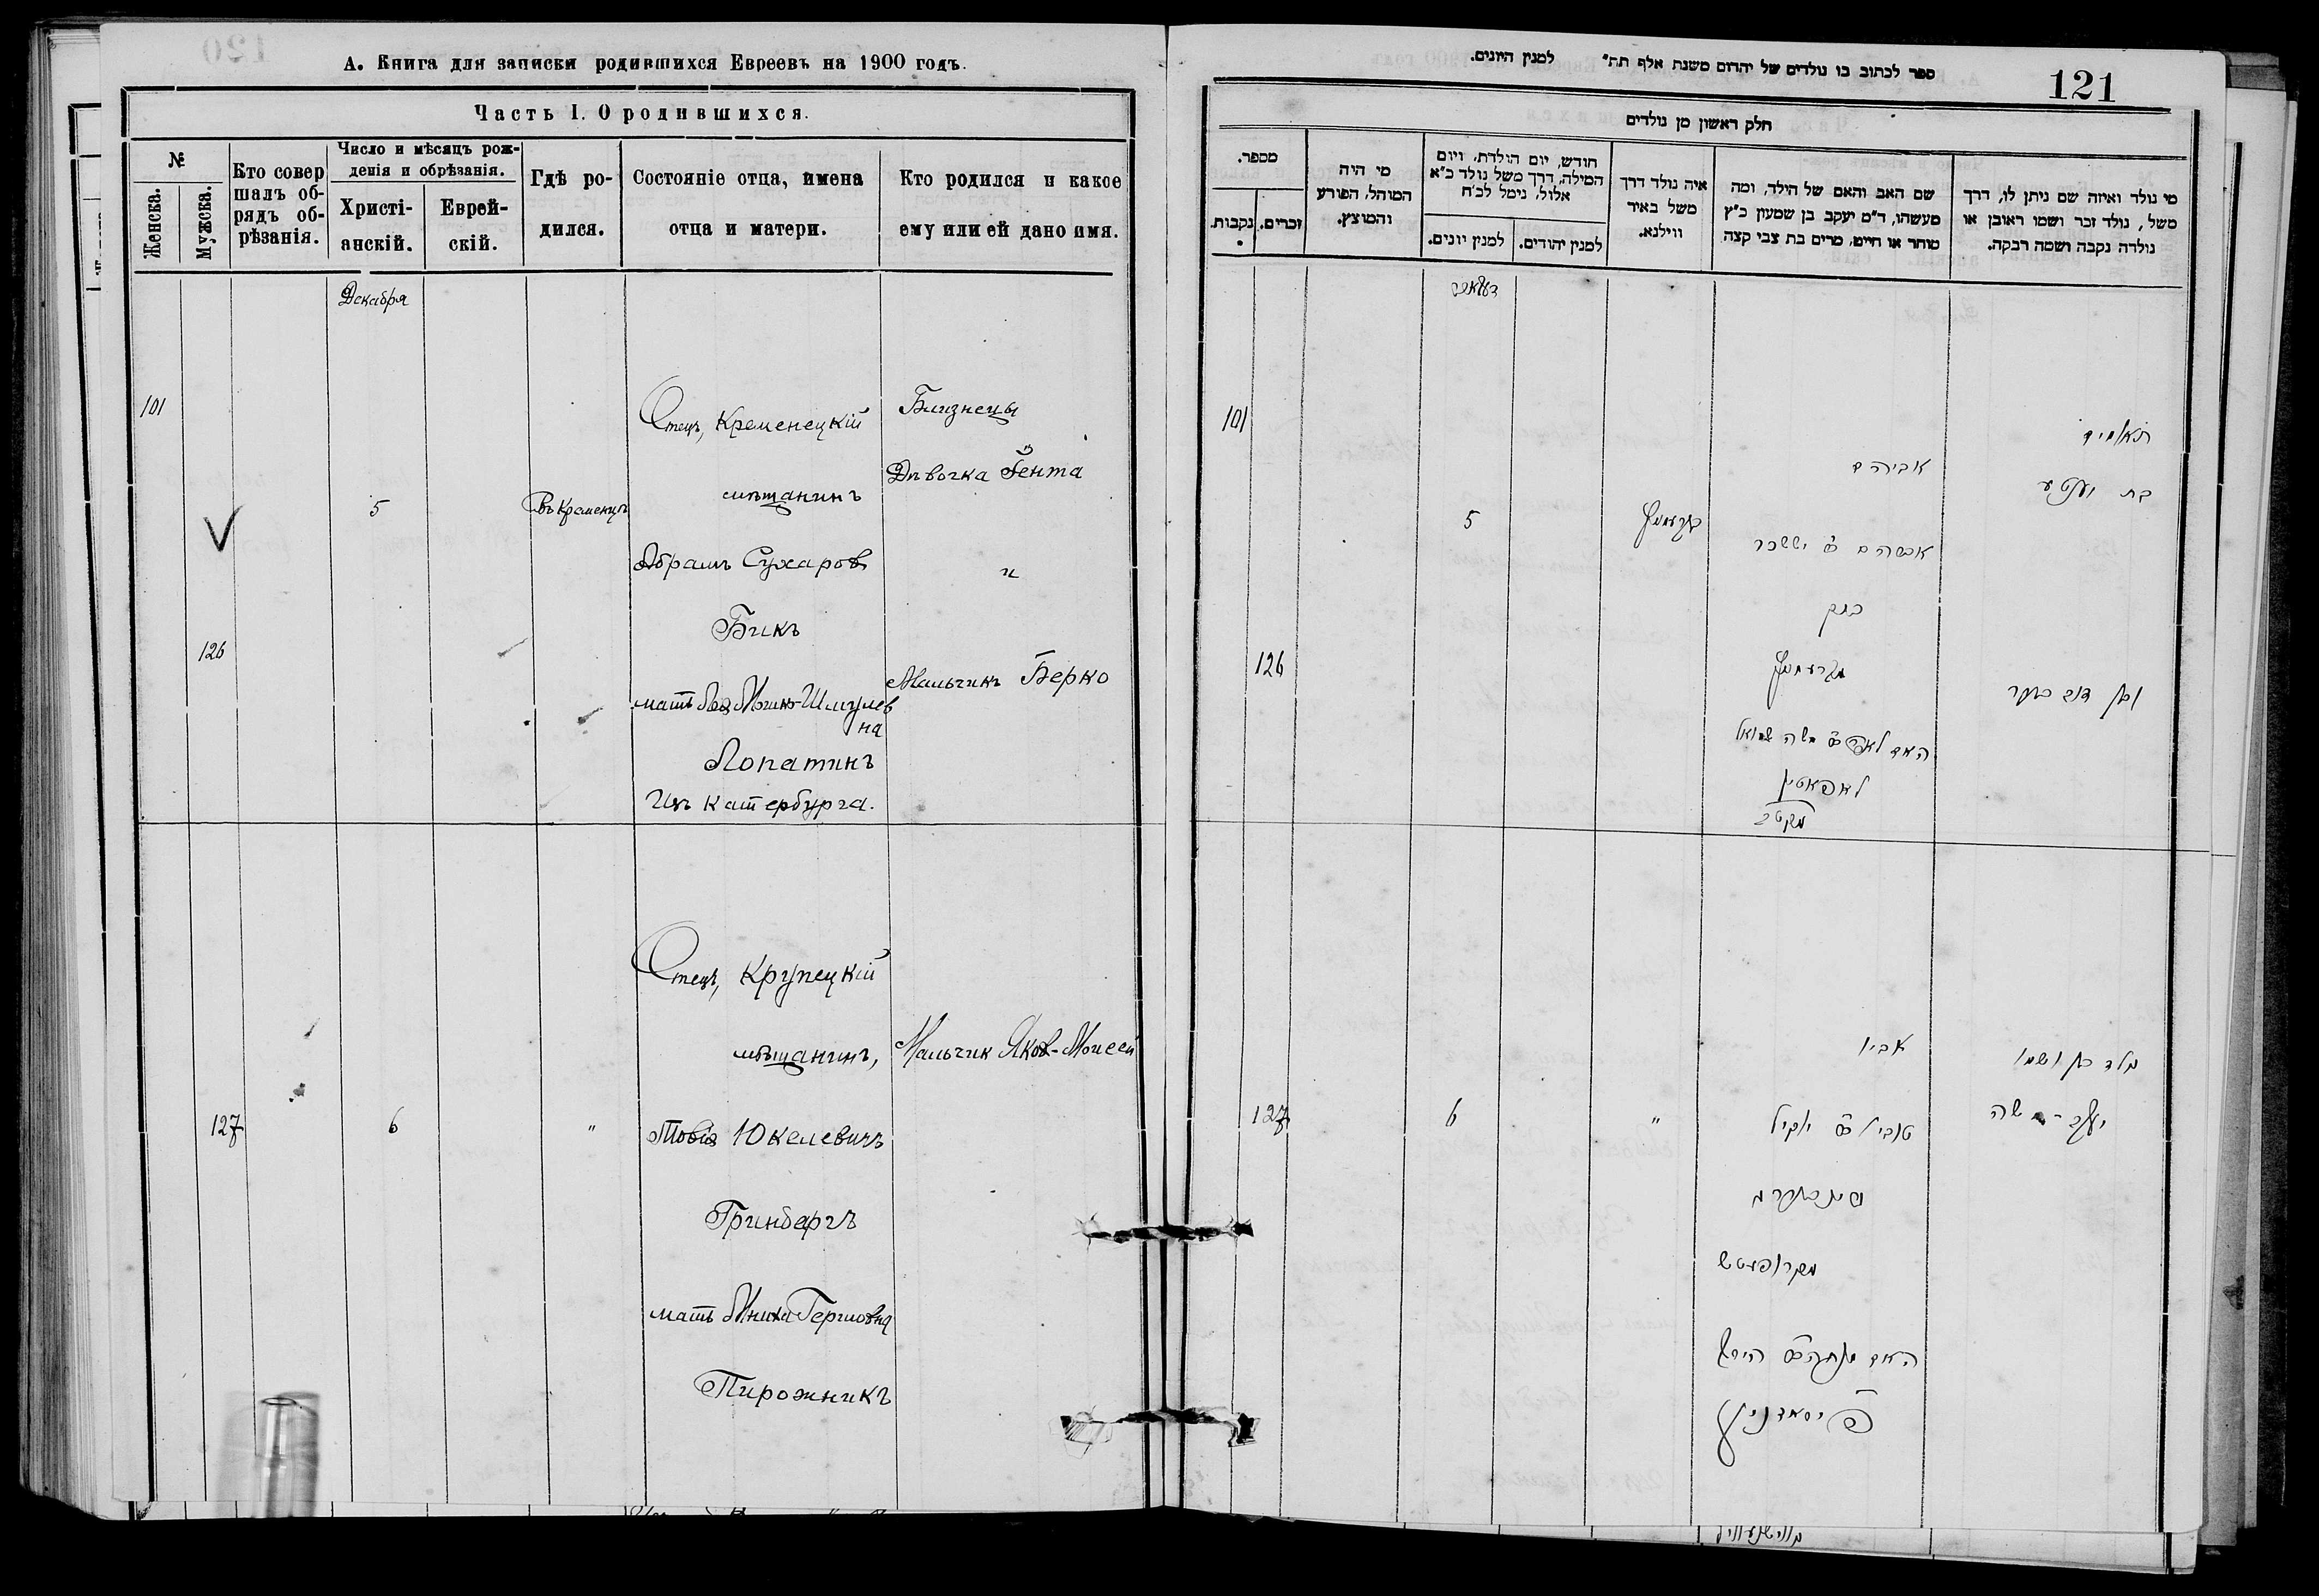 А. Книга для записки родившихся Евреевъ на 1900 годъ.
Часть I. О родившихся.
№
Женска.
Мужска.
Кто совер
шалъ об-
рядъ об-
рѣзанія.
Число и мѣсяцъ рож-
денія и обрѣзанія.
Христі-
анскій.
Еврей-
скій.
Гдѣ ро-
дился.
Состояніе отца, имена
отца и матери.
Кто родился и какое
ему или ей дано имя.
Декабря
101
126
5
Въ Кременцѣ
Отецъ, Кременецкій
мѣщанинъ
Абрамъ Сухаровъ
Бикъ
мать Мошко-Шмулев
на
Лопатинъ
Изъ Катербурга.
Близнецы
Дѣвочка Ента
и
Мальчикъ Берко
127
6
"
Отецъ, Крупецкій
мѣщанинъ,
Товія Юкелевичъ
Гринбергъ
мать Гершовна
Пирожникъ
Мальчик Яков-Моисей
ספר לכתוב בו נולדים של יהדום משנת אלף תת״ למנין היונים.
121
חלק ראשון מן נולדים
מספר.
נקבות.
זכרים.
מי היה
המוהל, הפורע
והמוצץ.
חודש, יום הולדת, ויום
המילה, דרך משל נולד כ״א
אלול, נימל לכ״ח
למנין יונים.
למנין יהודים.
איה נולד דרך
משל באיר
ווילנא.
שם האב והאם של הילד, ומה
מעשהו, ד״מ יעקב בן שמעון כ״ץ
סוחר או חייט, מרים בת צבי קצה
מי נולד ואיזה שם ניתן לו, דרך
משל, נולד זכר ושמו ראובן או
נולדה נקבה ושמה רבקה.
101
126
5
אביהם
יששכר
ביק
משה שמואל
לאפאטין
תאומים
בת יענטע
ובן דוב בער
127
6
"
אביו
טובי׳ יוקיל
מקרופעטש
האם הירש
ילד בן ושמו
יעקב-משה